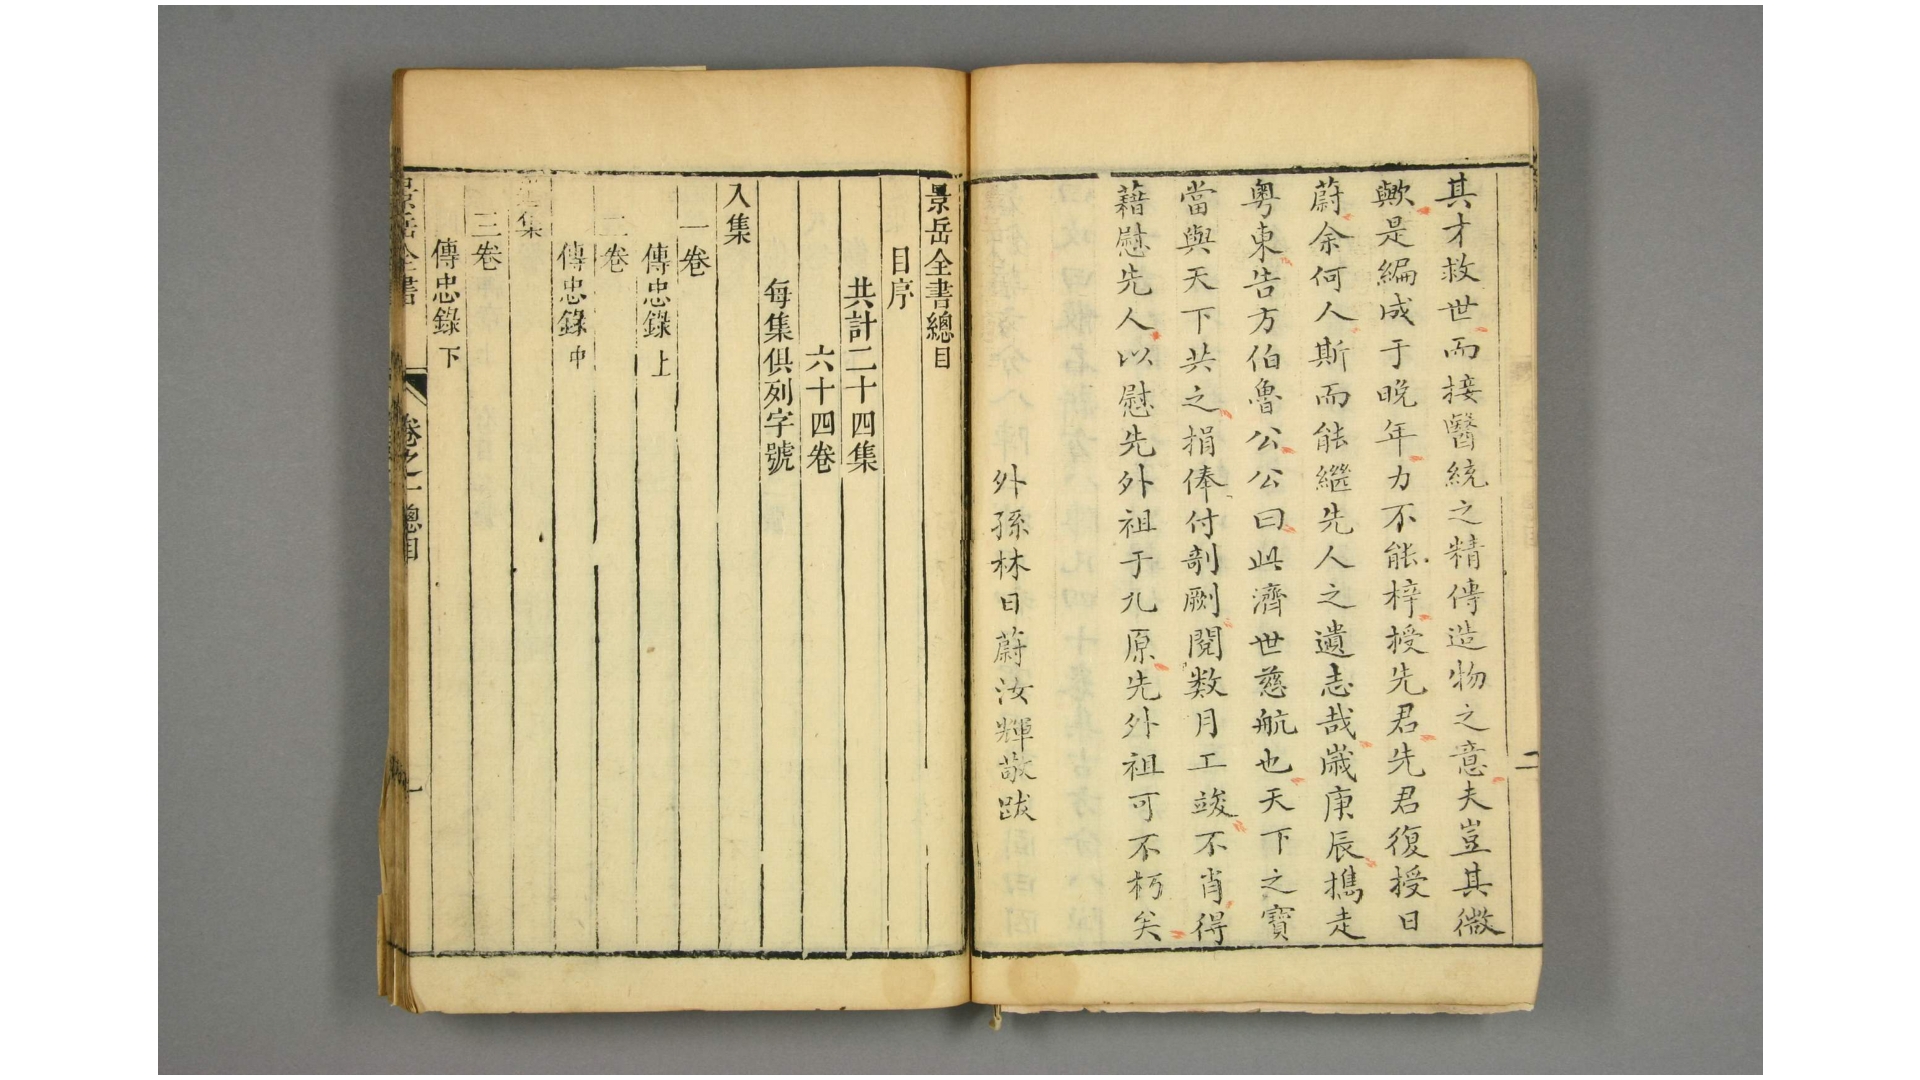 其才救世而接醫統之精傳造物之意夫豈其微
歟是編成于晚年力不能梓授先君先君復授日
蔚余何人斯而能繼先人之遺志哉嵗庚辰攜走
粤東告方伯魯公公曰此濟世慈航也天下之寶
當與天下共之捐俸付剞劂閱数月工竣不肖得
藉慰先人以慰先外祖于九原先外祖可不朽矣
外孫林日蔚汝輝敬跋
二
景岳全書總目
目序
共計二十四集
六十四卷
每集俱列字號
入集
一卷
傳忠錄上
二卷
傳忠錄中
道集
三卷
傳忠錄下
景岳全書
卷之一總目
一